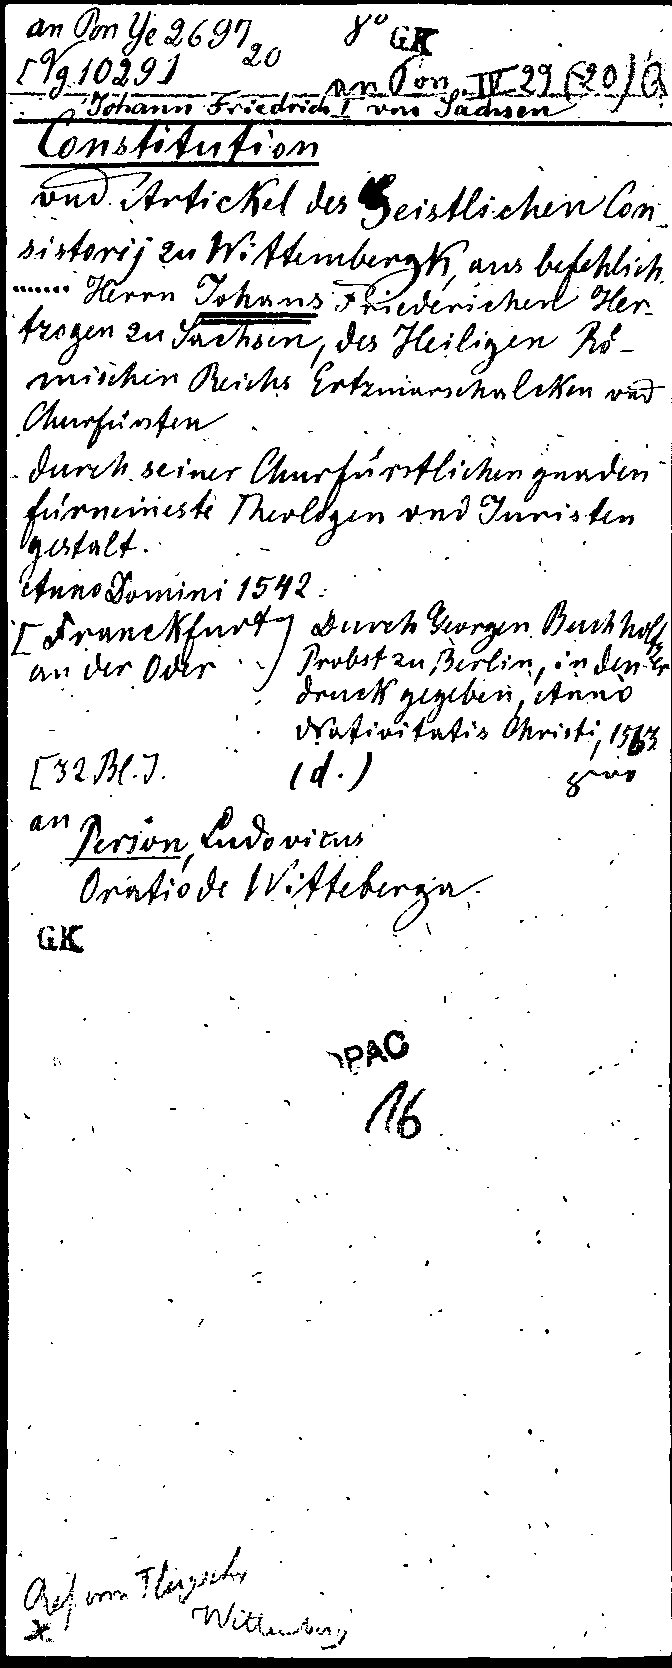 an Pon Ye 2697 8° GK
20
[Vg 1029] an Pon IV 29 (20)
Johann Friedrich I von Sachsen
Constitution
vnd Artickel des Geistlichen Con-
sistorij zu Wittembergk, aus befehlich
....... Herrn Johans Friederichen Her-
tzogen zu Sachsen, des Heiligen Rö-
mischen Reichs Ertzmarschalcken vnd
Churfürsten
durch seiner Churfürstlichen gnaden
fürnemeste Theologen vnd Juristen
gestalt.
Anno Domini 1542.
[Franckfurt Durch Georgen Buchholtzer
an der Oder] Probst zu Berlin, in den
druck gegeben, Anno
Nativitatis Christi, 1563
[32 Bl.]. (d.) 8vo
an Person, Ludovicus
Oratio de Witteberga.
GK
OPAC
16
Wittenberg